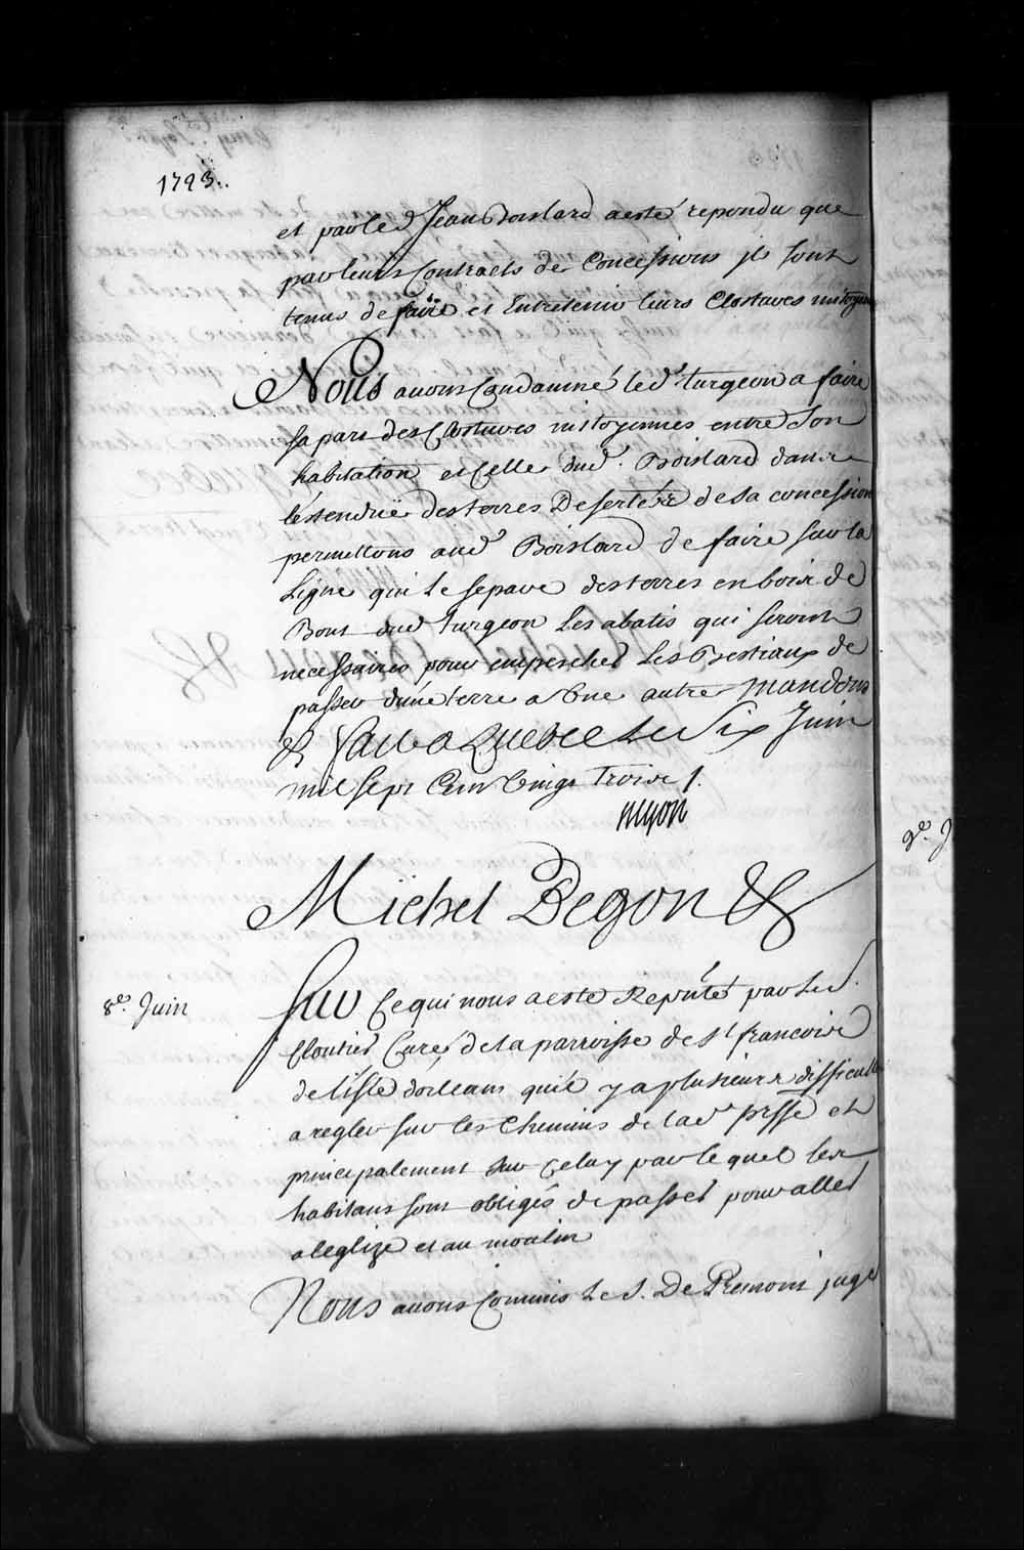 1723.
et par led Jean Boislard a esté repondu que
par leurs Contracts de Concessions ils sont
tenus de faire et Entretenir leurs Clostures mitoyen
Nous avons Condamné led. turgeon a faire
sa part des Clostures mitoyennes entre son
habitation et Celle dud. Boislard dans
léstendüe des terres Desertées de sa concession
permettons aud Boislard de faire sur la
Ligne qui le separe des terres en bois de
Bout dud turgeon les abatis qui seront
necessaires pour empescher les Bestiaux de
passer d'une terre a Une autre Mandons
&c fait a Quebec le Six Juin
mil sept Cent Vingt Trois /.
Michel Begon &c
8e. Juin
Sur Ce qui nous a esté Repnté par le S.
Cloutier Curé de la parroisse de st francois
de l'isle dorleans quil y a plusieurs difficult
a regler sur les Chemins de lad. psse et
principalement sur Celuy par le quel les
habitans sont obligés de passer pour aller
a leglize et au moulin
Nous avons Commis le S. De Premont juge